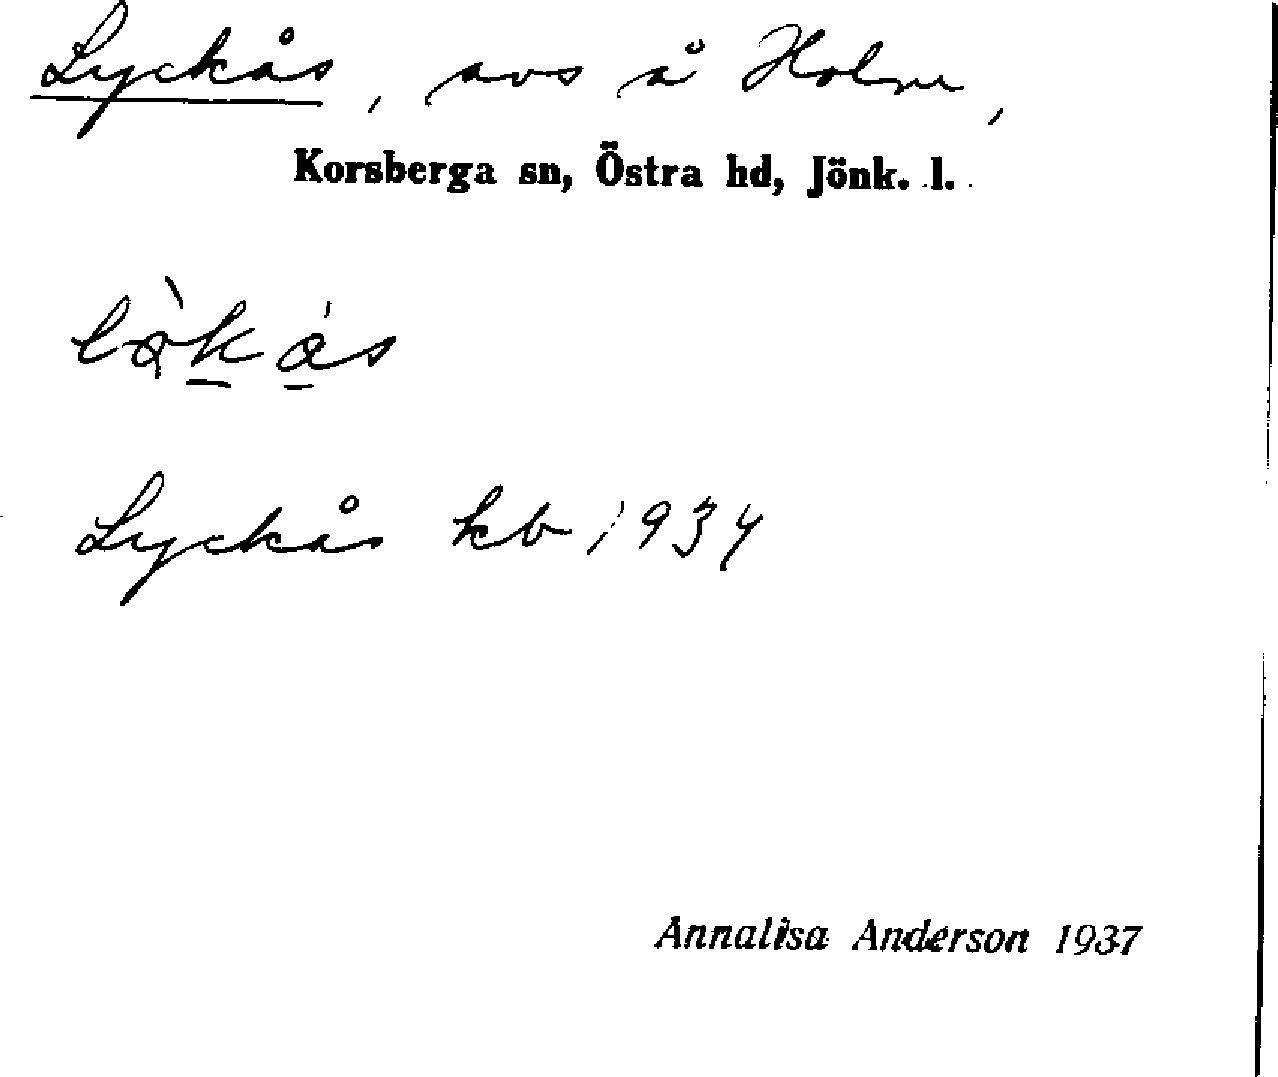 Lyckås, avs å Holm,
Korsberga sn, Östra hd, Jönk. l.
Lyckås kb 1934
Annalisa Anderson 1937